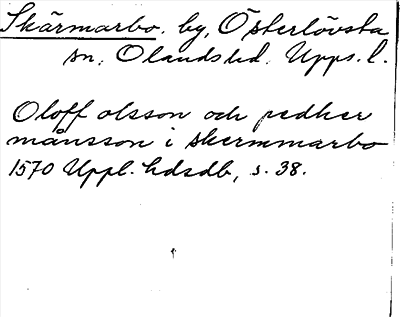 Skärmarbo. by, Österlövsta
sn, Olands hd. Upps. l.
Oloff olsson och pedher
månsson i skermmarbo
1570 Uppl. hdsdb, s. 38.